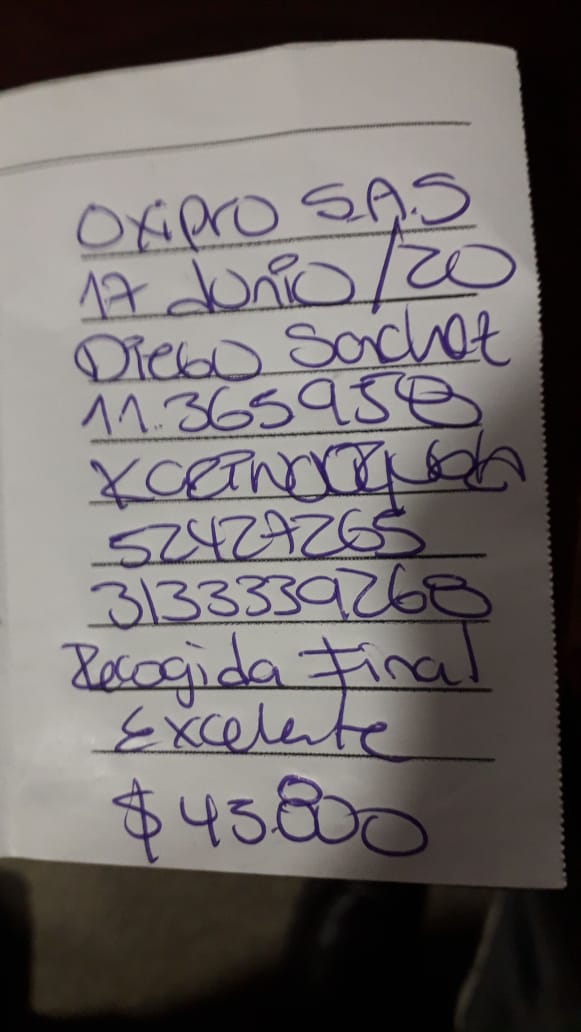 Oxipro S.A.S
17 Junio/20
Diego
11.365958
52427265
3133339268
Recogida final
Excelente
$ 45.800